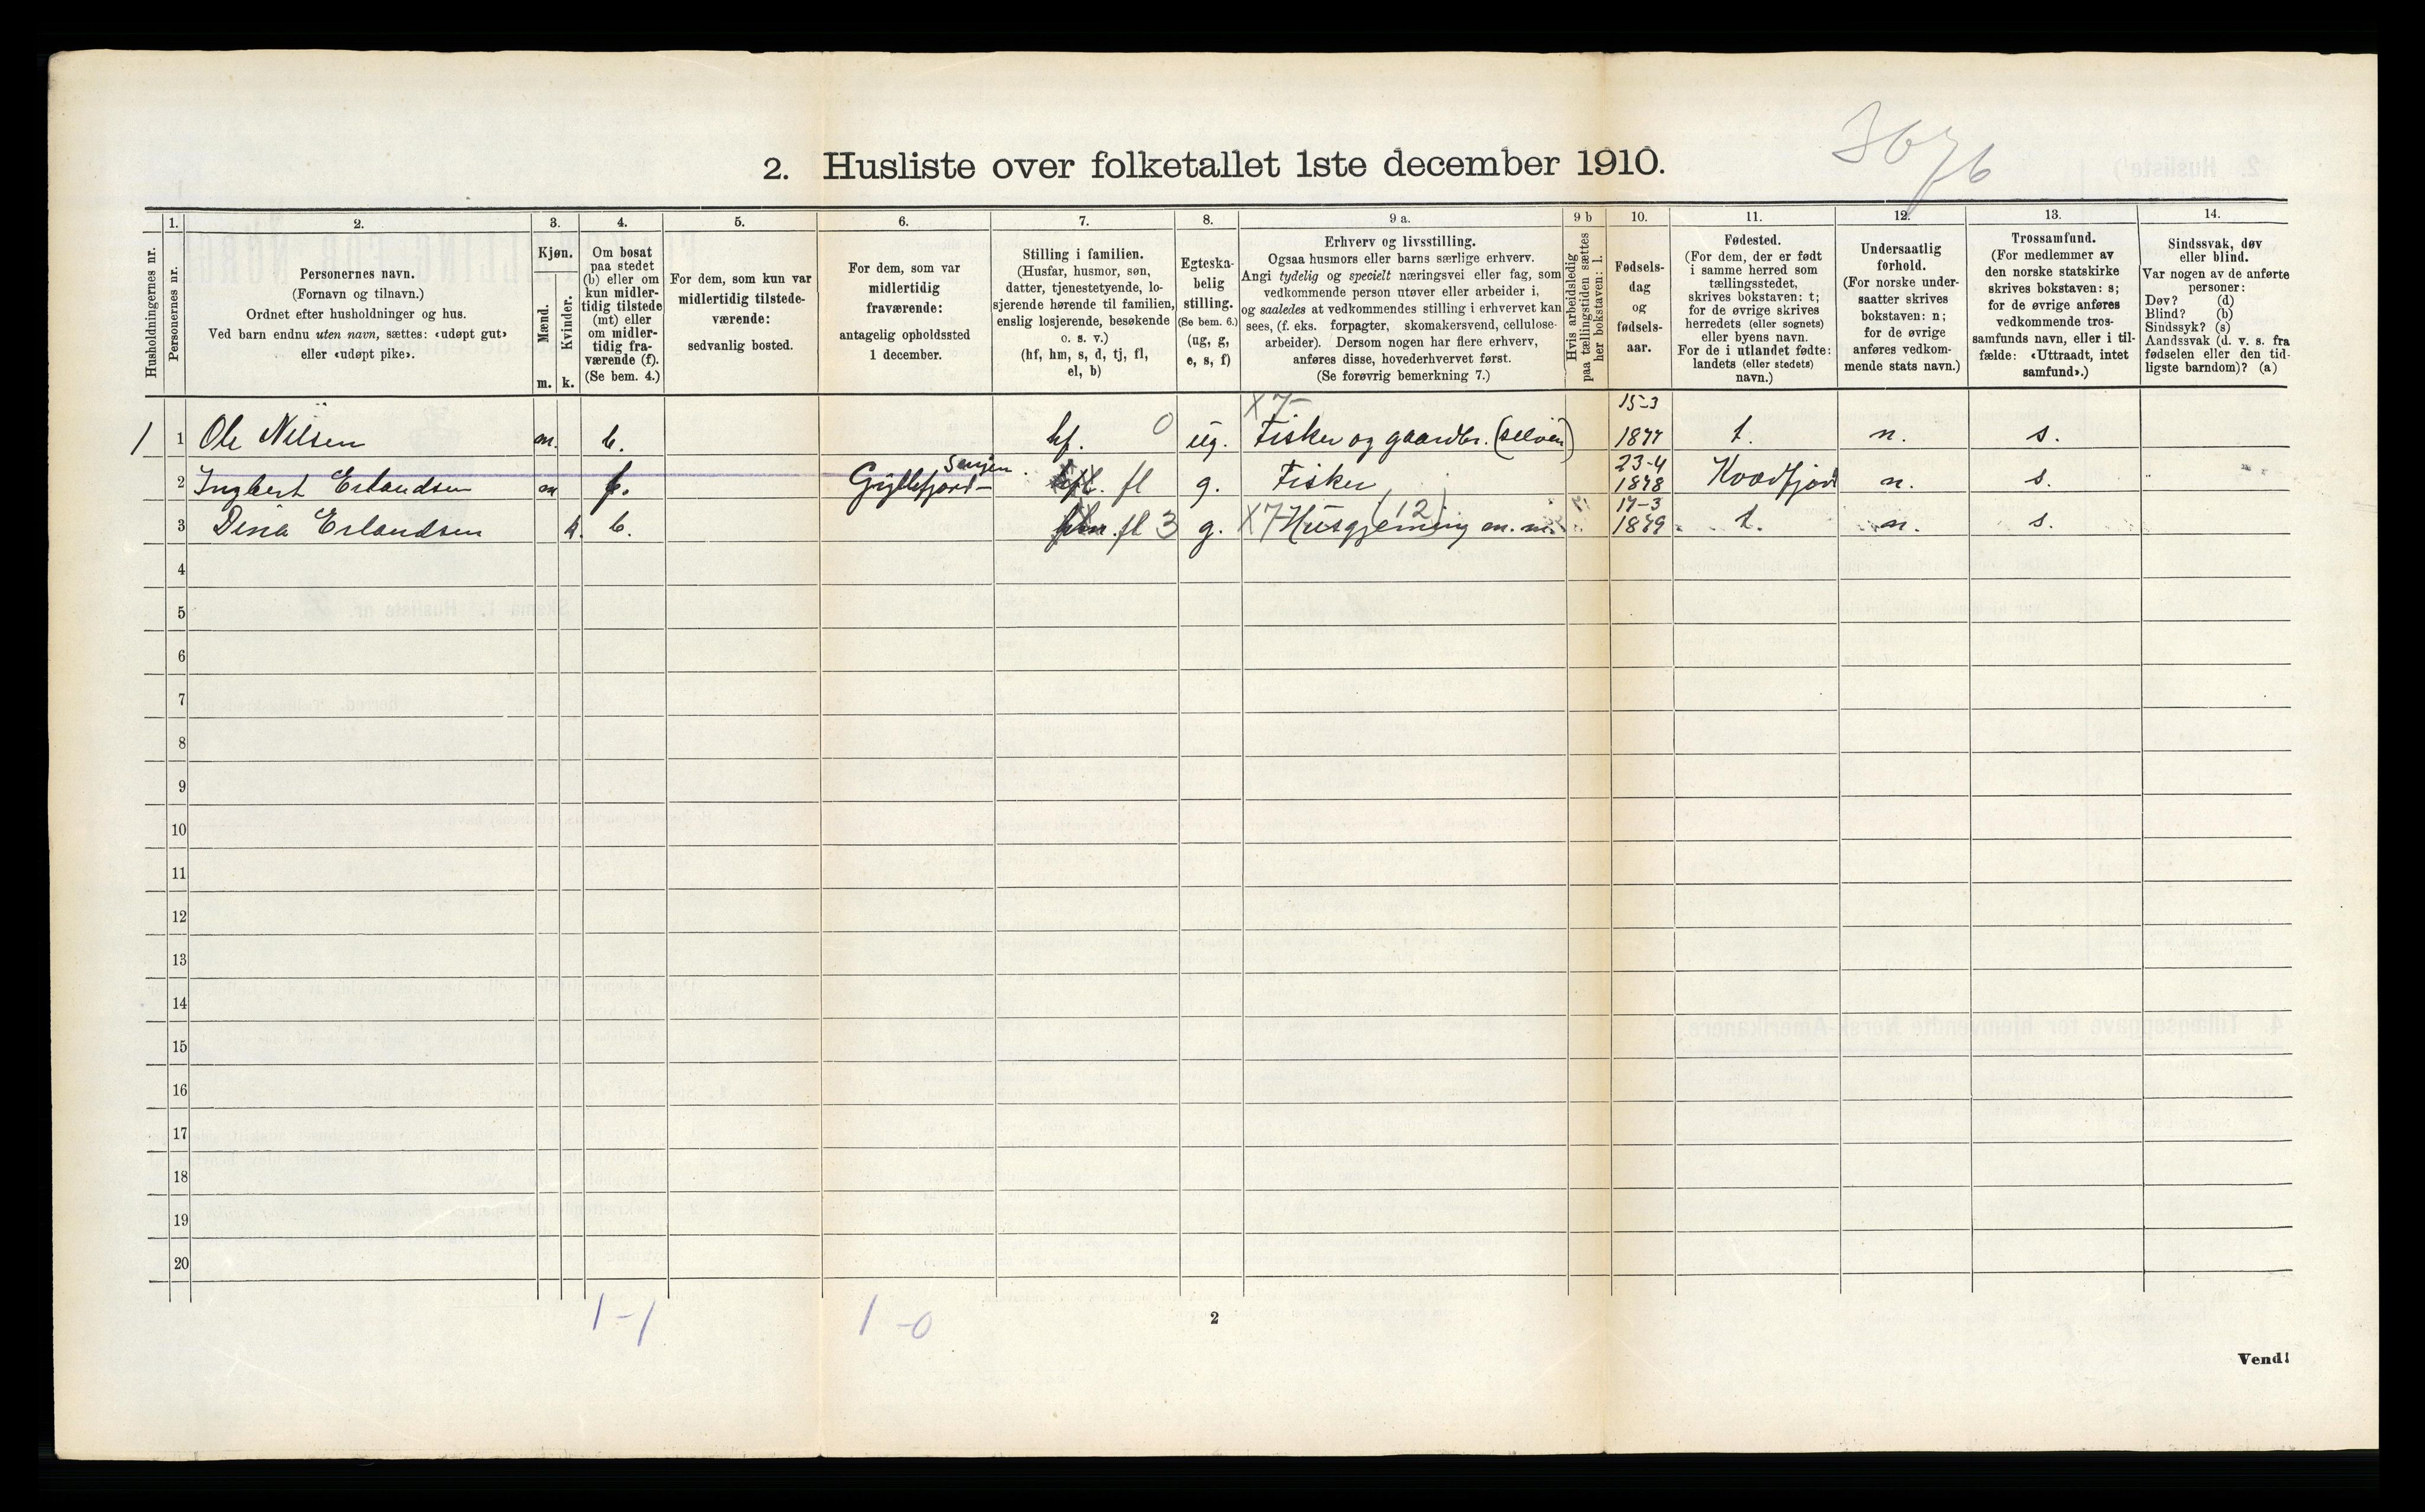 3676
2. Husliste over folketallet 1ste december 1910.
Husholdningernes nr.
1.
Personernes nr.
2.
Personernes navn.
(Fornavn og tilnavn.)
Ordnet efter husholdninger og hus.
Ved barn endnu uten navn, sættes: «udøpt gut»
eller «udøpt pike».
3.
Kjøn.
Mænd.
Kvinder.
m. k.
4.
Om bosat
paa stedet
(b) eller om
kun midler-
tidig tilstede
(mt) eller
om midler-
tidig fra-
værende (f).
(Se bem. 4.)
5.
For dem, som kun var
midlertidig tilstede-
værende:
sedvanlig bosted.
6.
For dem, som var
midlertidig
fraværende:
antagelig opholdssted
1 december.
7.
Stilling i familien.
(Husfar, husmor, søn,
datter, tjenestetyende, lo-
sjerende hørende til familien,
enslig losjerende, besøkende
o. s. v.)
(hf, hm, s, d, tj, fl,
el, b)
8.
Egteska-
belig
stilling.
(Se bem. 6.)
(ug, g,
e, s, f)
9 a.
Erhverv og livsstilling.
Ogsaa husmors eller barns særlige erhverv.
Angi tydelig og specielt næringsvei eller fag, som
vedkommende person utøver eller arbeider i,
og saaledes at vedkommendes stilling i erhvervet kan
sees, (f. eks. forpagter, skomakersvend, cellulose-
arbeider). Dersom nogen har flere erhverv,
anføres disse, hovederhvervet først.
(Se forøvrig bemerkning 7.)
9 b
Hvis arbeidsledig
paa tællingstiden sættes
her bokstaven: l.
10.
Fødsels-
dag
og
fødsels-
aar.
11.
Fødested.
(For dem, der er født
i samme herred som
tællingsstedet,
skrives bokstaven: t;
for de øvrige skrives
herredets (eller sognets)
eller byens navn.
For de i utlandet fødte:
landets (eller stedets)
navn.)
12.
Undersaatlig
forhold.
(For norske under-
saatter skrives
bokstaven: n;
for de øvrige
anføres vedkom-
mende stats navn.)
13.
Trossamfund.
(For medlemmer av
den norske statskirke
skrives bokstaven: s;
for de øvrige anføres
vedkommende tros-
samfunds navn, eller i til-
fælde: «Uttraadt, intet
samfund».)
14.
Sindssvak, døv
eller blind.
Var nogen av de anførte
personer:
Døv? (d)
Blind? (b)
Sindssyk? (s)
Aandssvak (d. v. s. fra
fødselen eller den tid-
ligste barndom)? (a)
X7- 15-3
1 1 Ole Nilsen m. b. hf. 0 ug. Fisker og gaardbr. (selveier) 1877 t. n. s.
Senjen. 23-4
2 Ingbert Erlandsen m f. Gryllefjord- fl g. Fisker 1878 Kvædfjord n. s.
(12) 17-3
3 Dina Erlandsen k. b. fl 3 g. X7 Husgjerning m. m. 1879 t. n. s.
4
5
6
7
8
9
10
11
12
13
14
15
16
17
18
19
20
1-1 1-0
2
Vend!